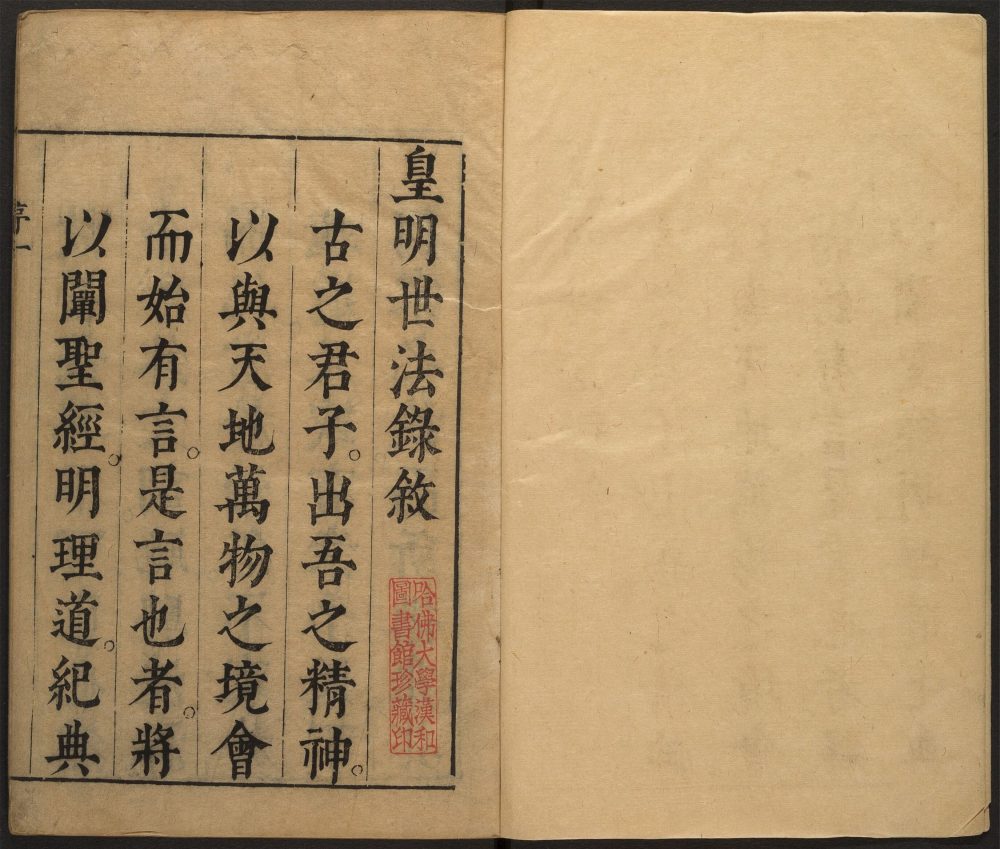 皇明世法錄敘
古之君子。出吾之精神。
以與天地萬物之境會
而始有言。是言也者。將
以闡聖經。明理道。紀典
序一
哈佛大學漢和
圖書館珍藏印